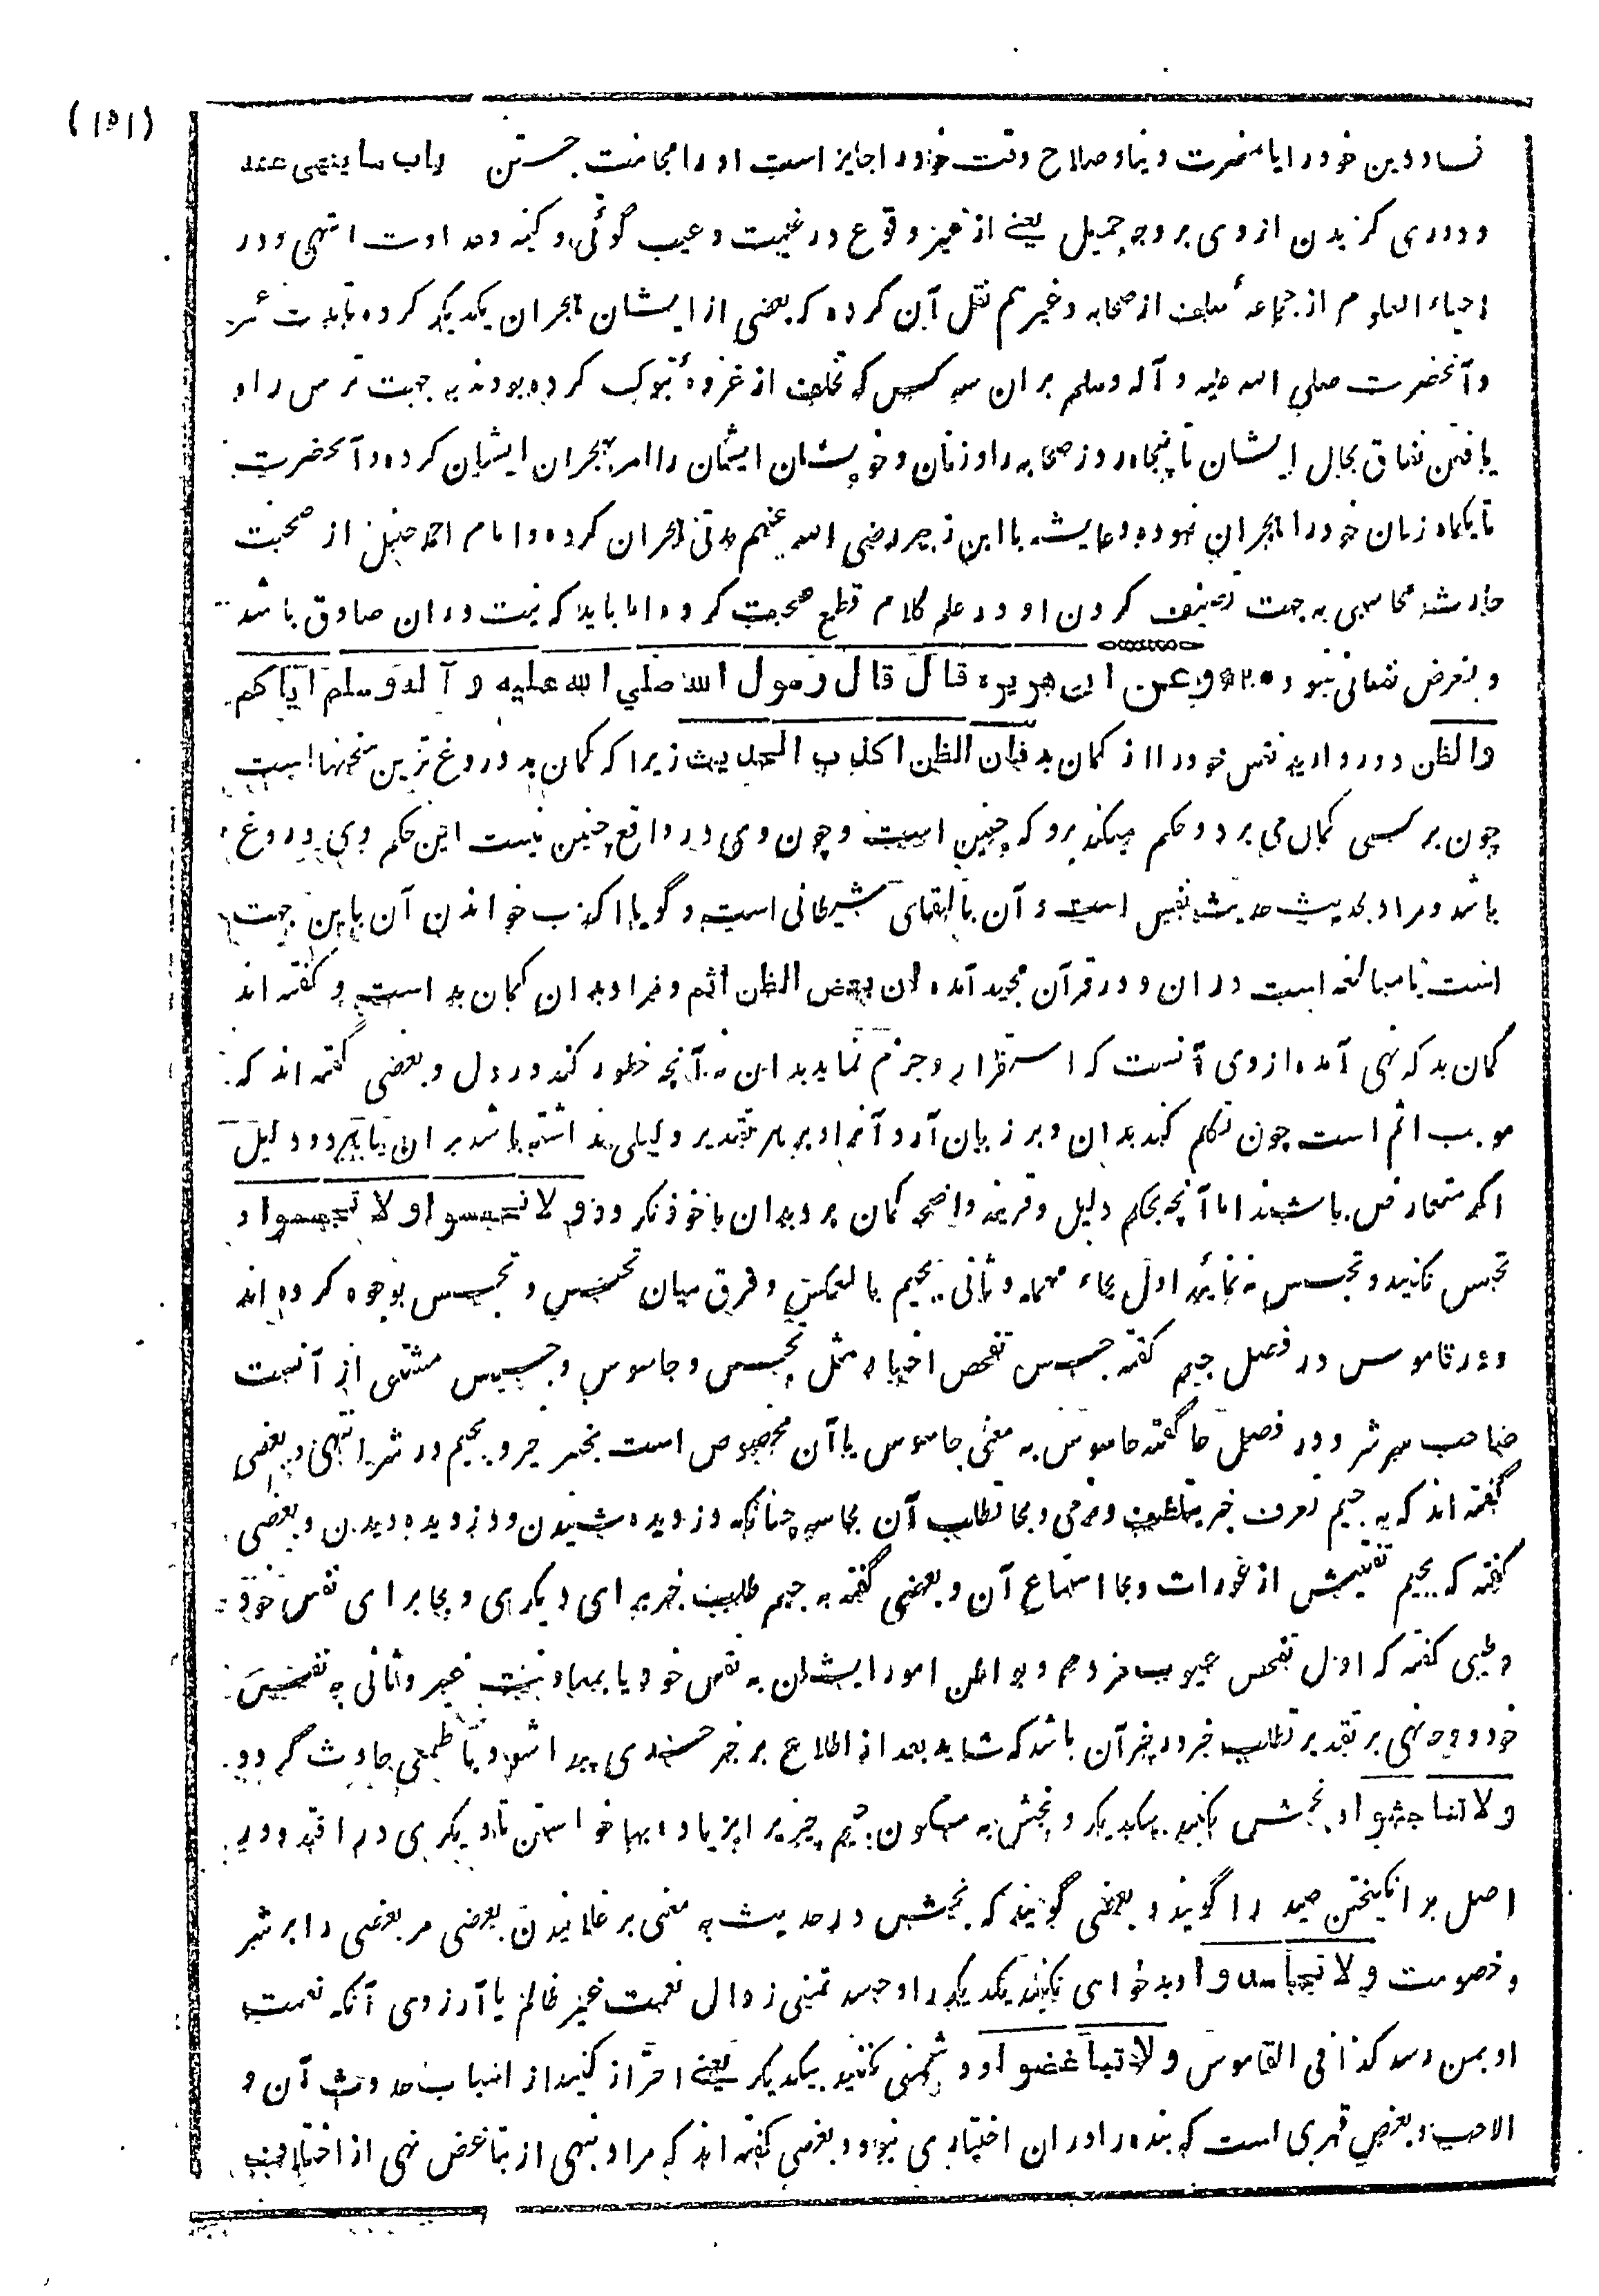 (۱۵۱)
فساد دین خود را یا مضرت دنیا و صلاح وقت خود را جایز است او را مجانبت جستن باب ما ینهی عنه
و دوری گزیدن از وی بر وجه جمیل یعنے از غیر وقوع در غیبت و عیب گوئی و کینه و عداوت انتهی و در
احیاء العلوم از جماعهٔ سلف از صحابه و غیرهم نقل آن کرده که بعضی از ایشان هجران یکدیگر کرده تا بمدت عمر
و آنحضرت صلی الله علیه و آله وسلم بر آن سه کس که تخلف از غزوهٔ تبوک کرده بودند به جهت ترس راه
یافتن نفاق بحال ایشان تا پنجاه روز صحابه را و زنان و خویشان ایشان را امر بهجران ایشان کرده و آنحضرت
تا یکماه زنان خود را هجران نموده و عایشه با ابن زبیر رضی الله عنهم مدتی هجران کرده و امام احمد حنبل از صحبت
حارث محاسبی به جهت تصنیف کردن او در علم کلام قطع صحبت کرده اما باید که نیت در ان صادق باشد
و بغرض نفسانی نبود * ۲ * وعن ابی هریره قال قال رسول الله صلی الله علیه و آله وسلم ایاکم
والظن دور دارید نفس خود را از گمان بد فان الظن اکذب الحدیث زیرا که گمان بد دروغ ترین سخنها است
چون بر کسی گمان می برد و حکم میکند برو که چنین است و چون وی در واقع چنین نیست این حکم وی دروغ
باشد و مراد بحدیث حدیث نفس است و آن بالقای شیطانی است و گویا اکذب خواندن آن باین جهت
است یا مبالغه است در ان و در قرآن مجید آمده ان بعض الظن اثم و مراد بدان گمان بد است و گفته اند
گمان بد که نهی آمده از وی آنست که استقرار و جزم نماید بدان نه آنچه خطور کند در دل و بعضی گفته اند که
موجب اثم است چون تکلم کند بدان و بر زبان آرد و آنمراد بر هر تقدیر دلیلی نداشته باشد بر ان یا هر دو دلیل
اگر متعارض باشند اما آنچه بحکم دلیل و قرینه واضحه گمان برد بدان ماخوذ نگردد و لا تحسسوا و لا تجسسوا و
تحسس نکنید و تجسس نه نمائید اول بحاء مهمله و ثانی بجیم یا بالعکس و فرق میان تحسس و تجسس بوجوه کرده اند
و در قاموس در فصل جیم گفته جس تفحص اخبار مثل تجسس و جاسوس و جسیس مشتق از آنست
صاحب سر شر و در فصل حا گفته حاسوس به معنی جاسوس یا آن مخصوص است بخبر خیر و بجیم در شر انتهی و بعضی
گفته اند که به جیم تعرف خبر بتلطف و نرمی و بحا تطلب آن بحاسه چنانکه دزدیده شنیدن و دزدیده دیدن و بعضی
گفته که بجیم تفتیش از عورات و بحا استماع آن و بعضی گفته به جیم طلب خبر برای دیگری و بحا برای نفس خود
و طیبی گفته که اول تفحص عیوب مردم و بواطن امور ایشان به نفس خود یا بمعاونت غیر و ثانی به نفس
خود و وجه نهی بر تقدیر تطلب خبر در خبر آن باشد که شاید بعد از اطلاع بر خبر حسدی پیدا شود یا طمعی حادث گردد
و لا تناجشوا و نجش نکنید بیکدیگر و نجش به سکون جیم چیزی را بزیاده بها خواستن تا دیگری در افتد و در
اصل بر انگیختن صید را گویند و بعضی گویند که نجش در حدیث به معنی بر غلانیدن بعضی مر بعضی را بر شر
و خصومت و لا تحاسدوا و بدخواهی نکنید یکدیگر را و حسد تمنی زوال نعمت غیر ظالم یا آرزوی آنکه نعمت
او بمن رسد کذا فی القاموس و لا تباغضوا و دشمنی نکنید بیکدیگر یعنے احتراز کنید از اسباب حدوث آن و
الا حب و بغض قهری است که بنده را در ان اختیاری نبود و بعضی گفته اند که مراد بنهی از تباغض نهی از اختلاف